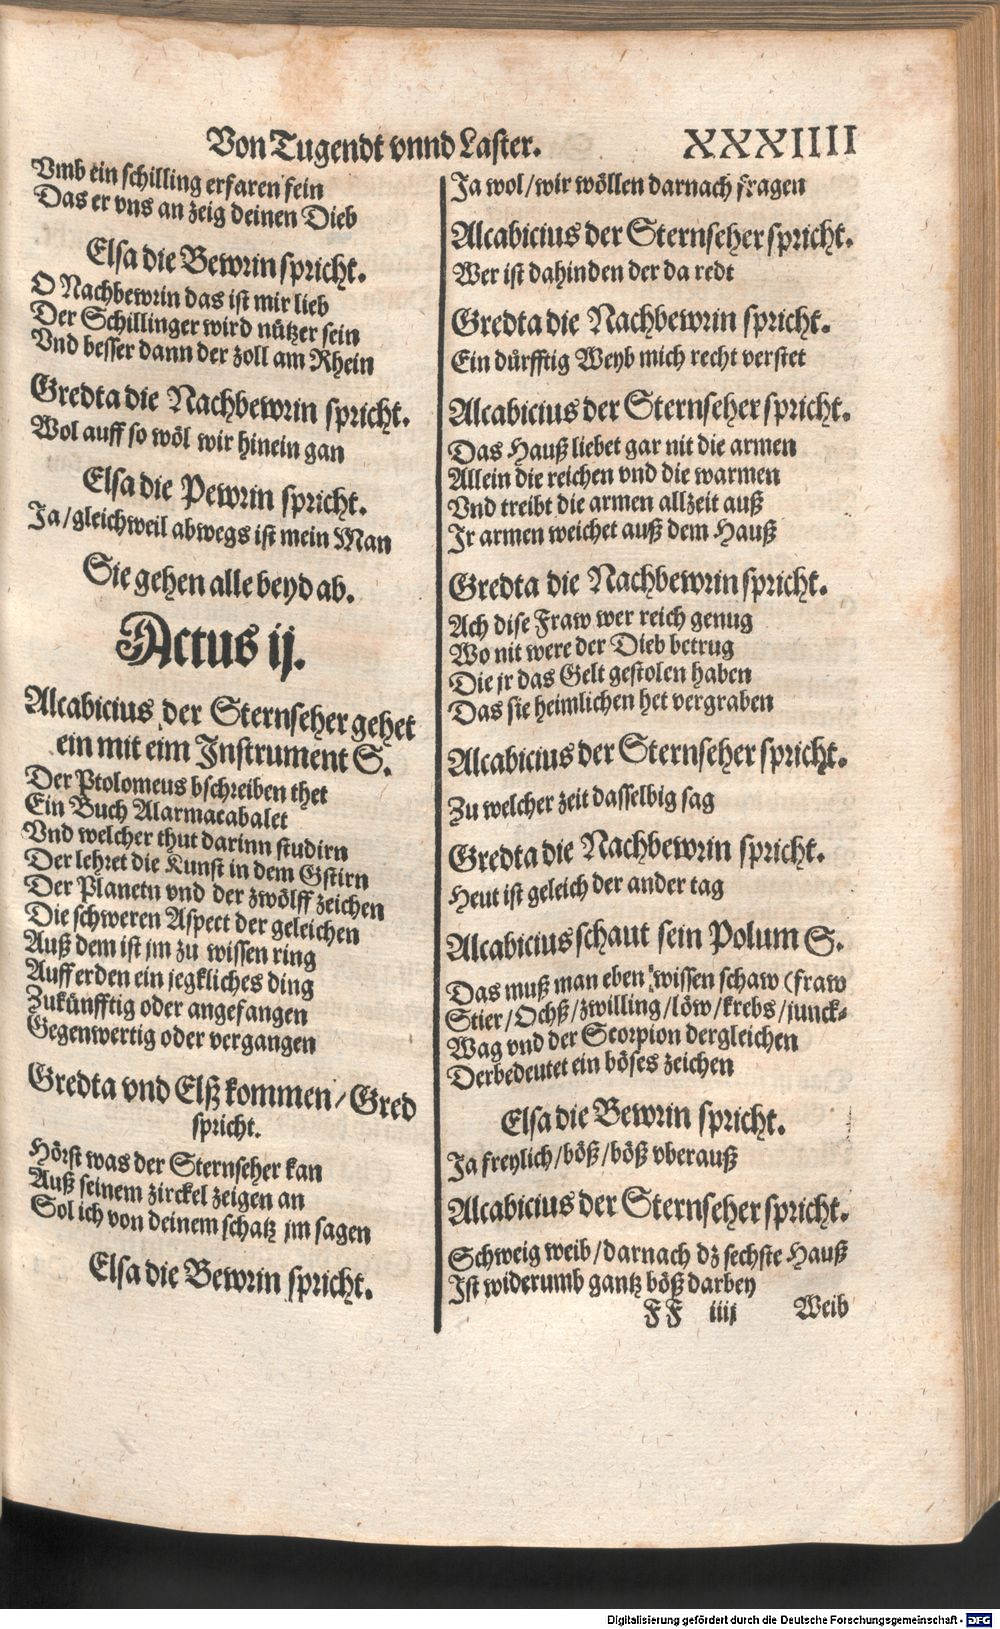 Von Tugendt vnnd Laster. XXXIIII
Vmb ein schilling erfaren fein
Das er vns an zeig deinen Dieb
Elsa die Bewrin spricht.
O Nachbewrin das ist mir lieb
Der Schillinger wird nützer sein
Vnd besser dann der zoll am Rhein
Gredta die Nachbewrin spricht.
Wol auff so wöl wir hinein gan
Elsa die Pewrin spricht.
Ja/gleichweil abwegs ist mein Man
Sie gehen alle beyd ab.
Actus ij.
Alcabicius der Sternseher gehet
ein mit eim Instrument S.
Der Ptolomeus bschreiben thet
Ein Buch Alarmacabalet
Vnd welcher thut darinn studirn
Der lehret die Kunst in dem Gstirn
Der Planetn vnd der zwölff zeichen
Die schweren Aspect der geleichen
Auß dem ist jm zu wissen ring
Auff erden ein jegkliches ding
Zukünfftig oder angefangen
Gegenwertig oder vergangen
Gredta vnd Elß kommen/Gred
spricht.
Hörst was der Sternseher kan
Auß seinem zirckel zeigen an
Sol ich von deinem schatz jm sagen
Elsa die Bewrin spricht.
Ja wol/wir wöllen darnach fragen
Alcabicius der Sternseher spricht.
Wer ist dahinden der da redt
Gredta die Nachbewrin spricht.
Ein dürfftig Weyb mich recht verstet
Alcabicius der Sternseher spricht.
Das Hauß liebet gar nit die armen
Allein die reichen vnd die warmen
Vnd treibt die armen allzeit auß
Ir armen weichet auß dem Hauß
Gredta die Nachbewrin spricht.
Ach dise Fraw wer reich genug
Wo nit were der Dieb betrug
Die jr das Gelt gestolen haben
Das sie heimlichen het vergraben
Alcabicius der Sternseher spricht.
Zu welcher zeit dasselbig sag
Gredta die Nachbewrin spricht.
Heut ist geleich der ander tag
Alcabicius schaut sein Polum S.
Das muß man eben wissen schaw (fraw
Stier/Ochß/zwilling/löw/krebs/junck-
Wag vnd der Scorpion dergleichen
Der bedeutet ein böses zeichen
Elsa die Bewrin spricht.
Ja freylich/böß/böß vberauß
Alcabicius der Sternseher spricht.
Schweig weib/darnach dz sechste Hauß
Ist widerumb gantz böß darbey
FF iiij Weib
Digitalisierung gefördert durch die Deutsche Forschungsgemeinschaft - DFG